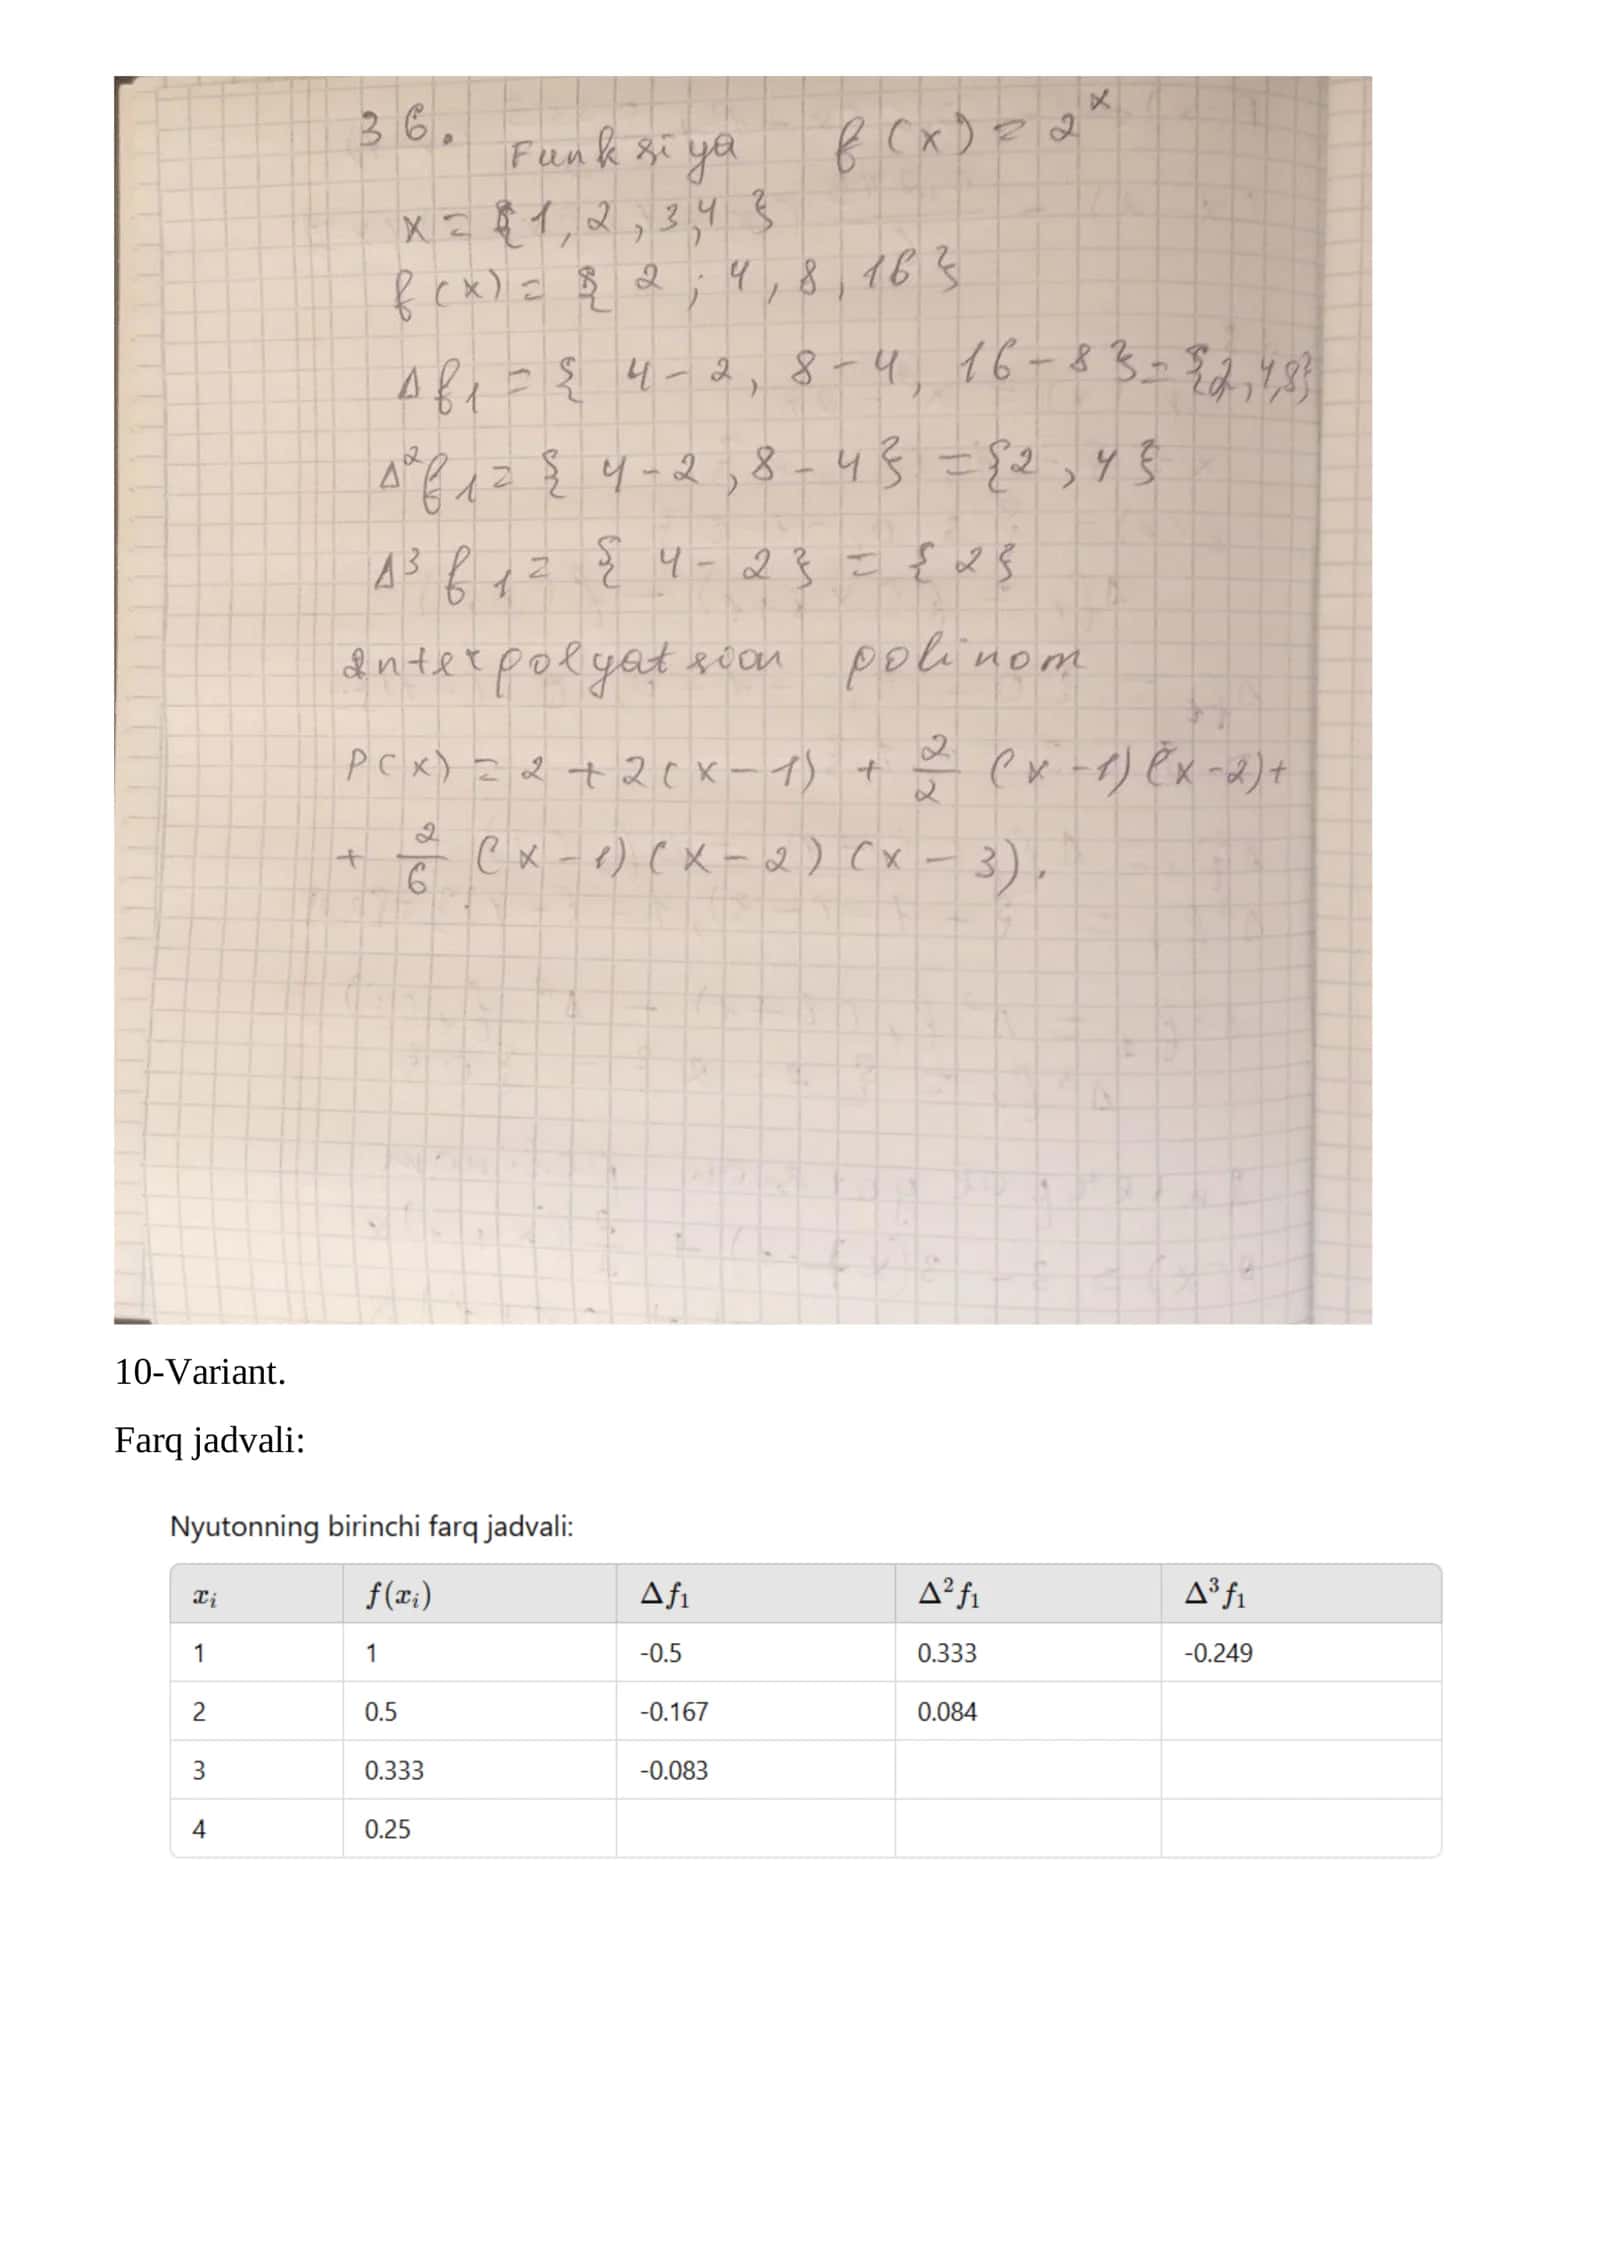 36. Funksiya f(x) = 2^x
x = {1, 2, 3, 4}
f(x) = { 2 ; 4, 8, 16 }
Δf₁ = { 4 - 2, 8 - 4, 16 - 8 } = {2, 4, 8}
Δ²f₁ = { 4 - 2, 8 - 4 } = {2, 4}
Δ³f₁ = { 4 - 2 } = { 2 }
interpolyatsion polinom
P(x) = 2 + 2(x - 1) + 2/2 (x - 1)(x - 2) +
+ 2/6 (x - 1)(x - 2)(x - 3).
10-Variant.
Farq jadvali:
Nyutonning birinchi farq jadvali:
xᵢ f(xᵢ) Δf₁ Δ²f₁ Δ³f₁
1 1 -0.5 0.333 -0.249
2 0.5 -0.167 0.084
3 0.333 -0.083
4 0.25